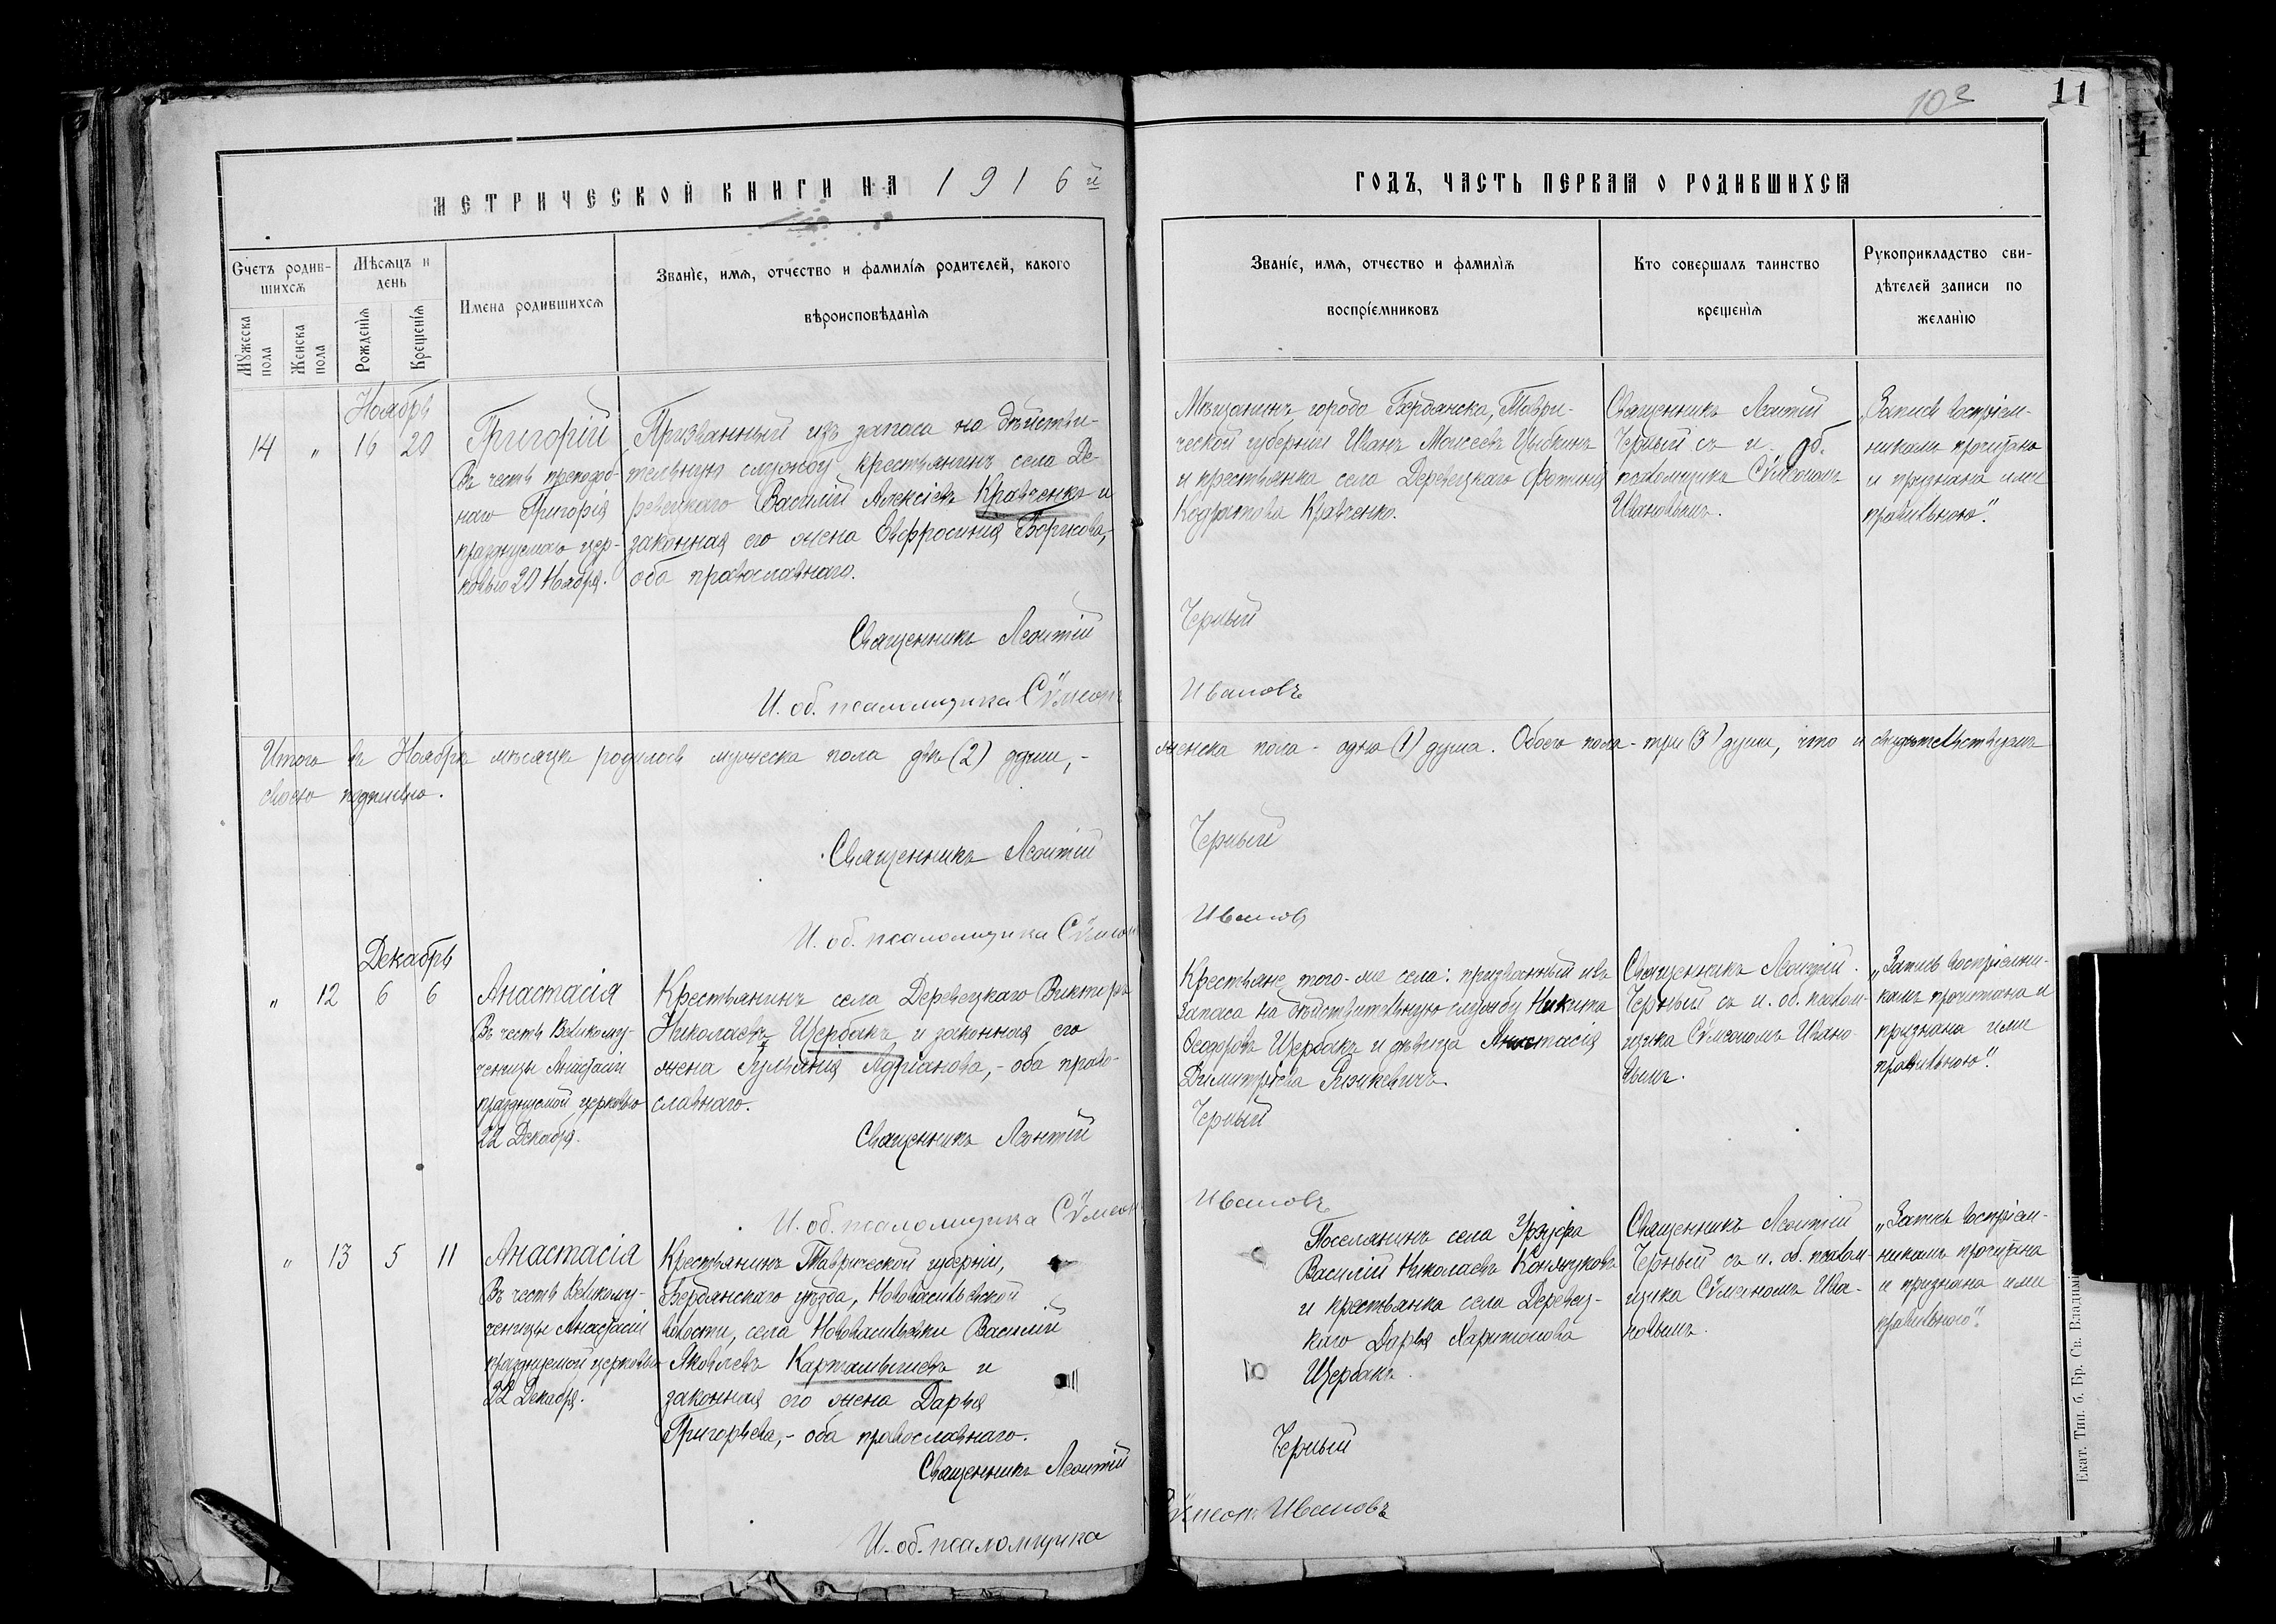 10
11
МЕТРИЧЕСКОЙ КНИГИ НА 1916й
ГОДЪ, ЧАСТЬ ПЕРВАЯ О РОДИВШИХСЯ
Счетъ родив-
шихся
Мѣсяцъ и
день
Имена родившихся
Званіе, имя, отчество и фамилія родителей, какого
вѣроисповѣданія
Мужеска
пола
Женска
пола
Рожденія
Крещенія
Званіе, имя, отчество и фамилія
воспріемниковъ
Кто совершалъ таинство
крещенія
Рукоприкладство сви-
дѣтелей записи по
желанію
Ноябрь
14 " 16 20
Григорій
Въ честь преподоб-
наго Григорія
празднуемаго цер-
ковью 20 Ноября.
Призванный изъ запаса на дѣйстви-
тельную службу, крестьянинъ села Де-
ревецкаго Василій Алексіевъ Кравченко и
законная его жена Евфросинія Борисова,
оба православнаго.
Мѣщанинъ города Бердянска, Таври-
ческой губерніи Иванъ Моисеевъ Цыбкинъ
и крестьянка села Деревецкаго Фотинія
Кодратова Кравченко.
Священникъ Леонтій
Черный съ и. об.
псаломщика Сѵмеономъ
Ивановымъ.
„Запись воспріем-
никамъ прочитана
и признана ими
правильною".
Священникъ Леонтій
Черный
И. об. псаломщика Сѵмеонъ
Ивановъ
Итого въ Ноябрѣ мѣсяцѣ родилось мужеска пола двѣ (2) души, -
женска пола - одна (1) душа. Обоего пола - три (3) души, что и свидѣтельствуемъ
своею подписью.
Священникъ Леонтій
Черный
И. об. псаломщика Сѵмеон
Иванов
Декабрь
" 12 6 6
Анастасія
Въ честь Великому-
ченицы Анастасіи
празднуемой церковью
22 Декабря.
Крестьянинъ села Деревецкаго Викторъ
Николаевъ Щербакъ и законная его
жена Іуліанія Адріанова, - оба право-
славнаго.
Крестьяне того-же села: призванный изъ
запаса на дѣйствительную службу Никита
Ѳеодоровъ Щербакъ и дѣвица Анастасія
Димитріева
Священникъ Леонтій
Черный съ и. об. псалом-
щика Сѵмеономъ Ивано-
вымъ.
„Запись воспріемни-
камъ прочитана и
признана ими
правильною".
Священникъ Леонтій
Черный
И. об. псаломщика Сѵмеон
Ивановъ
" 13 5 11
Анастасія
Въ честь Великому-
ченицы Анастасіи
празднуемой церковью
22 Декабря.
Крестьянинъ Таврической губерніи,
Бердянскаго уѣзда, Нововасильевской
волости, села Нововасильевки Василій
Яковлевъ Картамышевъ и
законная его жена Дарья
Григорьева, - оба православнаго.
Поселянинъ села Урзуфа
Василій Николаевъ
и крестьянка села Деревец-
каго Дарья Харитонова
Щербакъ.
Священникъ Леонтій
Черный съ и. об. псалом-
щика Сѵмеономъ Ива-
новымъ.
„Запись воспріем-
никамъ прочитана
и признана ими
правильною".
Священникъ Леонтій
Черный
И. об. псаломщика
Сѵмеонъ Ивановъ
Екат. Тип. б. Бр. Св. Владимі